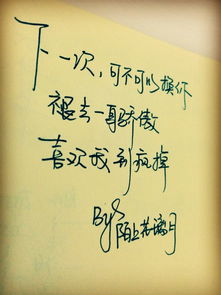 下一次,可不可以换你
褪去一身骄傲
喜欢我到疯掉
By:陌上苏漓月